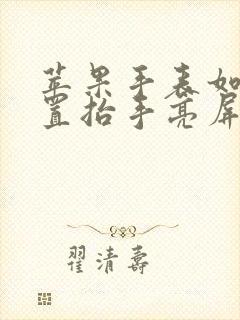 苹果手表如
置抬手亮屏
翟清寿